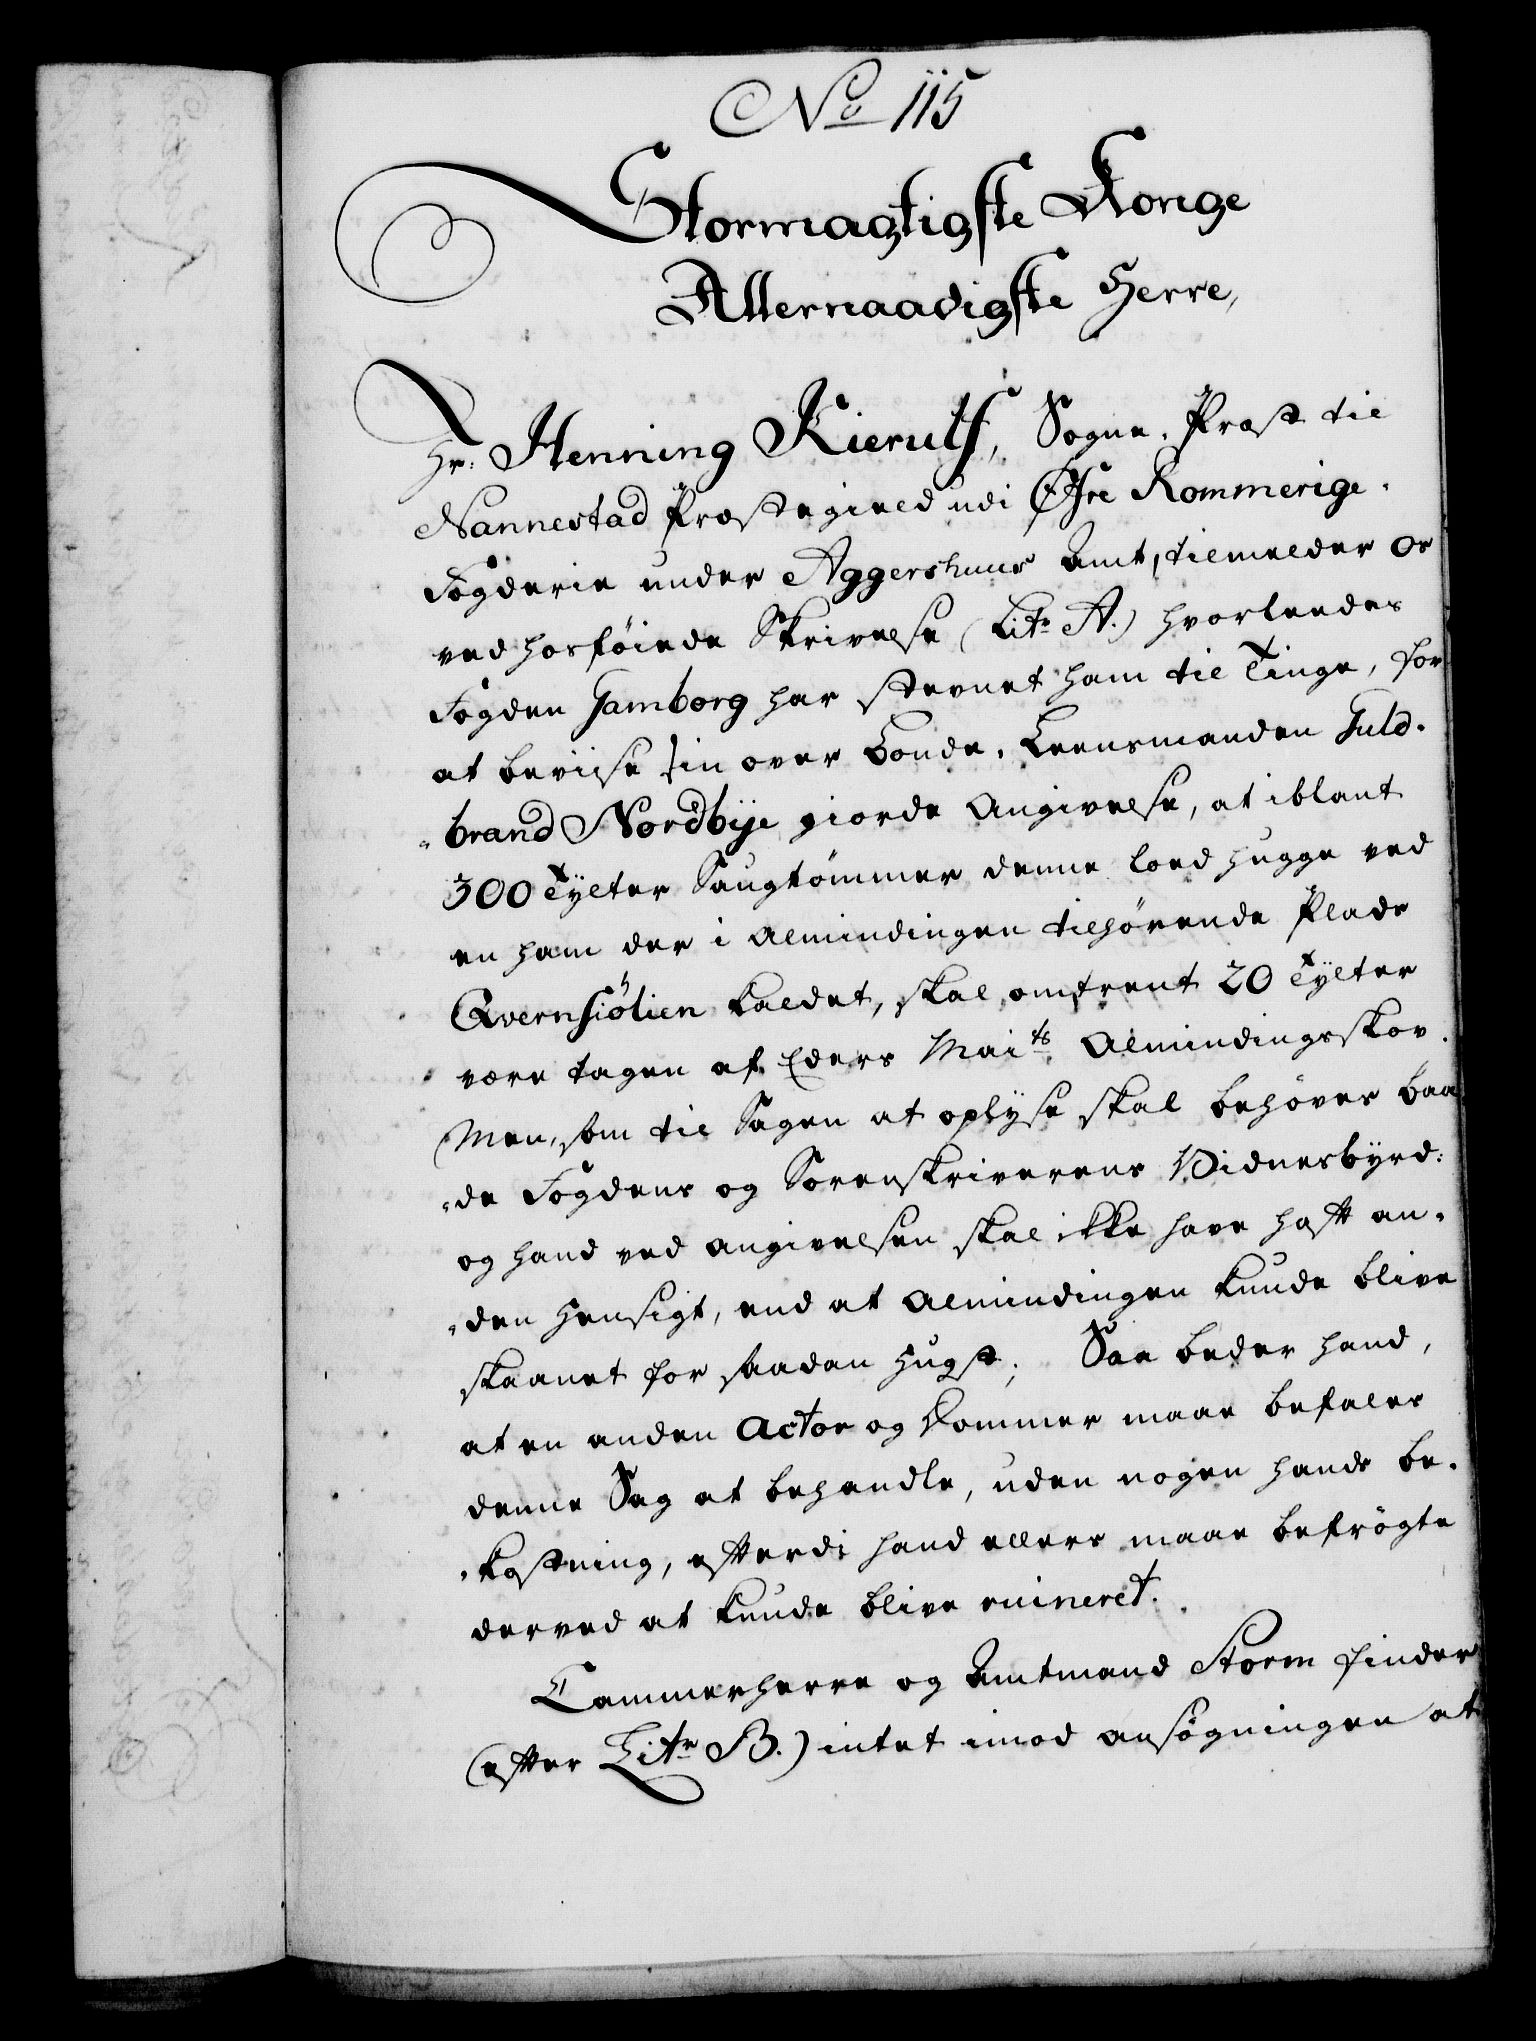 No 115
Stormagtigste Konge
Allernaadigste Herre,
Hr: Henning Kierulf, Sogne-Præst til
Nannestad Præstegield udi Øfre Rommerige-
Fogderie under Aggershuus Amt, tilmelder os
ved hosføiede Skrivelse (Litr A.) hvorleedes
Fogden Gamborg har stevnet ham til Tinge, for
at beviise sin over Bonde-Leensmanden Guld-
-brand Nordbÿe giorde Angivelse, at iblant
300 Tÿlter Saugtømmer denne loed hugge ved
en ham der i Almindingen tilhørende Plads
Qvernsiølien kaldet, skal omtrent 20 Tÿlter
være tagen af Eders Maits Almindingsskov.
Men, som til Sagen at oplÿse skal behøves baa
-de Fogdens og Sorenskriverens Vidnesbÿrd:
og hand ved angivelsen skal ikke have haft an-
-den Hensigt, end at Almindingen kunde blive
skaanet for saadan Hugst; Saa beder hand,
at en anden Actor og Dommer maae befales
denne Sag at behandle, uden nogen hands be-
-kostning, efterdi hand ellers maae befrÿgte
derved at kunde blive ruineret.
Cammerherre og Amtmand Storm finder
(efter Litr B.) intet imod ansøgningen at